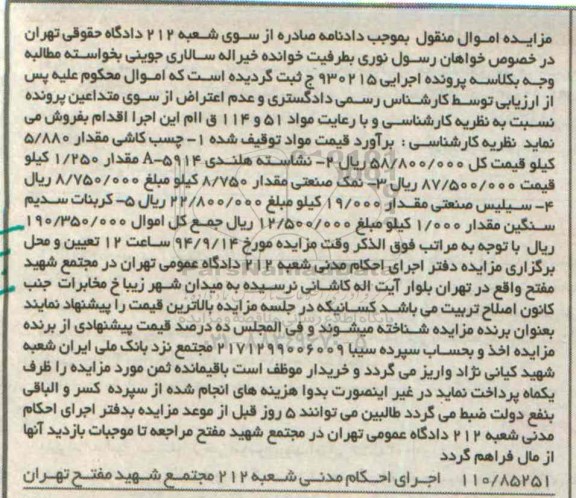 مزایده اموال منقول بموجب دادنامه صادره از سوی شعبه ۲۱۲ دادگاه حقوقی تهران
در خصوص خواهان رسول نوری بطرفیت خوانده خیراله سالاری جوینی بخواسته مطالبه
وجه بکلاسه پرونده اجرایی ۹۳۰۲۱۵ ج ثبت گردیده است که اموال محکوم علیه پس
از ارزیابی توسط کارشناس رسمی دادگستری و عدم اعتراض از سوی متداعین پرونده
نسبت به نظریه کارشناسی و با رعایت مواد ۵۱ و ۱۱۴ ق اام این اجرا اقدام بفروش می
نماید نظریه کارشناسی : برآورد قیمت مواد توقیف شده ۱- چسب کاشی مقدار ۵/۸۸۰
کیلو قیمت کل ۵۸/۸۰۰/۰۰۰ ریال ۲- نشاسته هلندی A-۵۹۱۴ مقدار ۱/۲۵۰ کیلو
قیمت ۸۷/۵۰۰/۰۰۰ ریال ۳- نمک صنعتی مقدار ۸/۷۵۰ کیلو مبلغ ۸/۷۵۰/۰۰۰ ریال
۴- سیلیس صنعتی مقدار ۱۹/۰۰۰ کیلو مبلغ ۲۲/۸۰۰/۰۰۰ ریال ۵- کربنات سدیم
سنگین مقدار ۱/۰۰۰ کیلو مبلغ ۱۲/۵۰۰/۰۰۰ ریال جمع کل اموال ۱۹۰/۳۵۰/۰۰۰
ریال با توجه به مراتب فوق الذکر وقت مزایده مورخ ۹۴/۹/۱۴ ساعت ۱۲ تعیین و محل
برگزاری مزایده دفتر اجرای احکام مدنی شعبه ۲۱۲ دادگاه عمومی تهران در مجتمع شهید
مفتح واقع در تهران بلوار آیت اله کاشانی نرسیده به میدان شهر زیبا خ مخابرات جنب
کانون اصلاح تربیت می باشد کسانیکه در جلسه مزایده بالاترین قیمت را پیشنهاد نمایند
بعنوان برنده مزایده شناخته میشوند و فی المجلس ده درصد قیمت پیشنهادی از برنده
مزایده اخذ و بحساب سپرده سیبا ۲۱۷۱۲۹۹۰۰۶۰۰۹ مجتمع نزد بانک ملی ایران شعبه
شهید کیانی نژاد واریز می گردد و خریدار موظف است باقیمانده ثمن مورد مزایده را ظرف
یکماه پرداخت نماید در غیر اینصورت بدوا هزینه های انجام شده از سپرده کسر و الباقی
بنفع دولت ضبط می گردد طالبین می توانند ۵ روز قبل از موعد مزایده بدفتر اجرای احکام
مدنی شعبه ۲۱۲ دادگاه عمومی تهران در مجتمع شهید مفتح مراجعه تا موجبات بازدید آنها
از مال فراهم گردد
۱۱۰/۸۵۲۵۱ اجرای احکام مدنی شعبه ۲۱۲ مجتمع شهید مفتح تهران